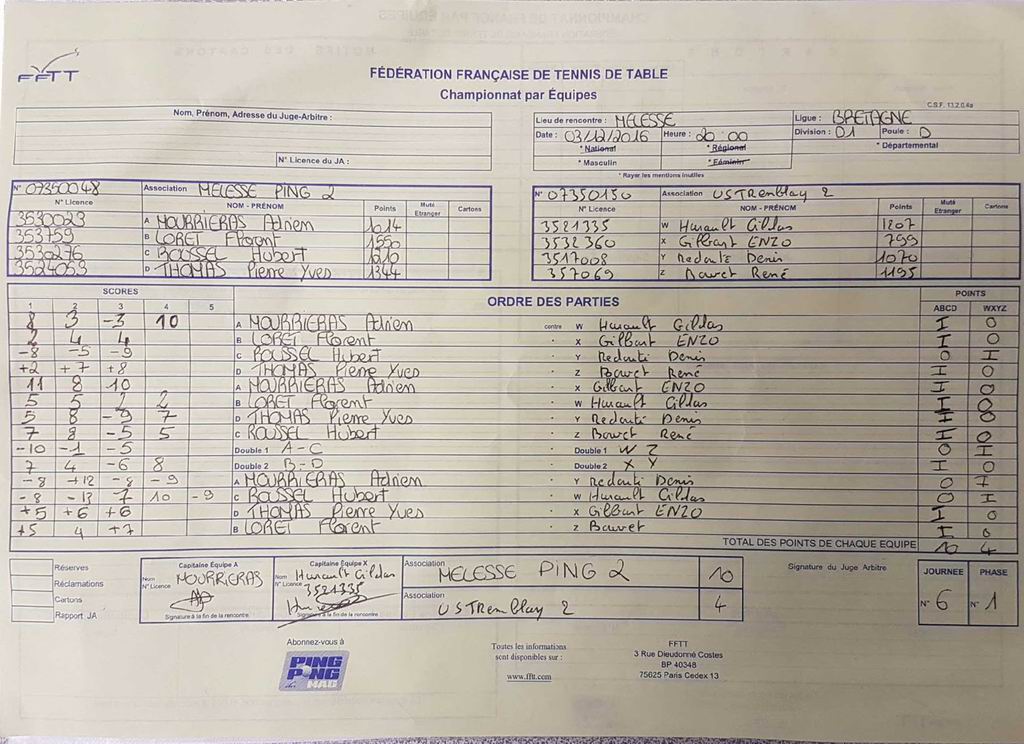 FFTT
FÉDÉRATION FRANÇAISE DE TENNIS DE TABLE
Championnat par Équipes
C.S.F. 13.2.0.4a
Nom, Prénom, Adresse du Juge-Arbitre :
N° Licence du JA :
Lieu de rencontre : MELESSE Ligue : BRETAGNE
Date : 03/12/2016 Heure : 20:00 Division : D1 Poule : D
* National * Régional * Départemental
* Masculin * Féminin
* Rayer les mentions inutiles
N° 07350048 Association MELESSE PING 2
N° Licence NOM - PRÉNOM Points Muté Etranger Cartons
3530023 A MOURRIERAS Adrien 1614
353759 B LORET Florent 1550
3530276 C ROUSSEL Hubert 1210
D THOMAS Pierre Yves 1344
N° 07350150 Association USTRemblay 2
N° Licence NOM - PRÉNOM Points Muté Etranger Cartons
3521335 W Hurault Gildas 1207
3532360 X Gilbart ENZO 799
3517008 Y Redouté Denis 1070
357069 Z Bouvet René 1195
SCORES ORDRE DES PARTIES POINTS
1 2 3 4 5 ABCD WXYZ
8 3 -3 10 A MOURRIERAS Adrien contre W Hurault Gildas I 0
2 4 4 B LORET Florent X Gilbart ENZO I 0
-8 -5 -9 C ROUSSEL Hubert Y Redouté Denis 0 I
+2 +7 +8 D THOMAS Pierre Yves Z Bouvet René I 0
11 8 10 A MOURRIERAS Adrien X Gilbart ENZO I 0
5 5 2 2 B LORET Florent W Hurault Gildas I 0
5 8 -9 7 D THOMAS Pierre Yves Y Redouté Denis I 0
7 8 -5 5 C ROUSSEL Hubert Z Bouvet René I 0
-10 -1 -5 Double 1 A-C Double 1 W Z 0 I
7 4 -6 8 Double 2 B-D Double 2 X Y I 0
-8 +12 -8 -9 A MOURRIERAS Adrien Y Redouté Denis 0 I
-8 -13 7 10 -9 C ROUSSEL Hubert W Hurault Gildas 0 I
+5 +6 +6 D THOMAS Pierre Yves X Gilbart ENZO I 0
+5 4 +7 B LORET Florent Z Bouvet I 0
TOTAL DES POINTS DE CHAQUE EQUIPE 10 4
Réserves
Réclamations
Cartons
Rapport JA
Capitaine Équipe A
Nom MOURRIERAS
N° Licence
Signature à la fin de la rencontre
Capitaine Équipe X
Nom Hurault Gildas
N° Licence 3521335
Signature à la fin de la rencontre
Association MELESSE PING 2 10
Association USTRemblay 2 4
Signature du Juge Arbitre
JOURNEE PHASE
N° 6 N° 1
Abonnez-vous à
PING PONG MAG
Toutes les informations
sont disponibles sur :
www.fftt.com
FFTT
3 Rue Dieudonné Costes
BP 40348
75625 Paris Cedex 13